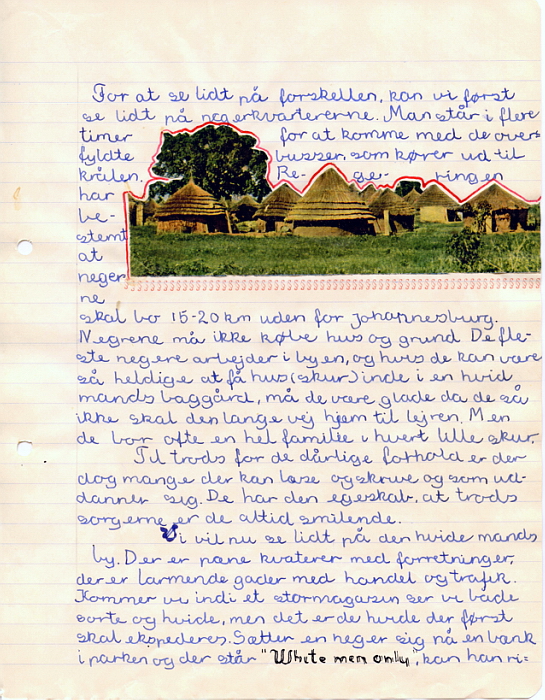 For at se lidt på forskellen, kan vi først
se lidt på negerkvartererne. Man står i flere
timer for at komme med de over-
fyldte busser, som kører ud til
krålen. Re- ge- ringen
har
be-
stemt
at
neger
ne
skal bo 15-20 km uden for Johannesburg.
Negrene må ikke købe hus og grund. De fle-
ste negere arbejder i byen, og hvis de kan være
så heldige at få hus (skur) inde i en hvid
mands baggård, må de være glade da de så
ikke skal den lange vej hjem til lejren. Men
de bor ofte en hel familie i hvert lille skur.
Til trods for de dårlige forhold er der
dog mange der kan læse og skrive og som ud-
danner sig. De har den egeskab, at trods
sorgerne er de altid smilende.
Vi vil nu se lidt på den hvide mands
by. Der er pæne kvaterer med forretninger,
der er larmende gader med handel og trafik.
Kommer vi ind i et stormagasin ser vi både
sorte og hvide, men det er de hvide der først
skal ekspederes. Sætter en neger sig på en bænk
i parken og der står "White men only", kan han ri=